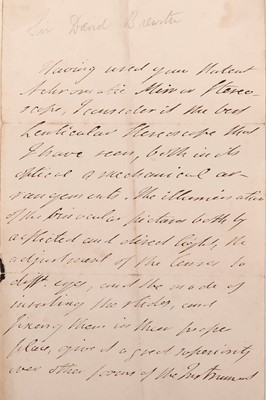 Sir David Brewster
Having used your Patent
Achromatic Mirror Stereo-
scope, I consider it the best
Lenticular Stereoscope that
I have seen, both in its
optical & mechanical ar-
rangements. The illumination
of the binocular pictures both by
reflected and direct light, the
adjustment of the lenses to
difft. eyes, and the mode of
inserting the slides, and
fixing them in their proper
place, give it a great superiority
over other forms of the Instrument